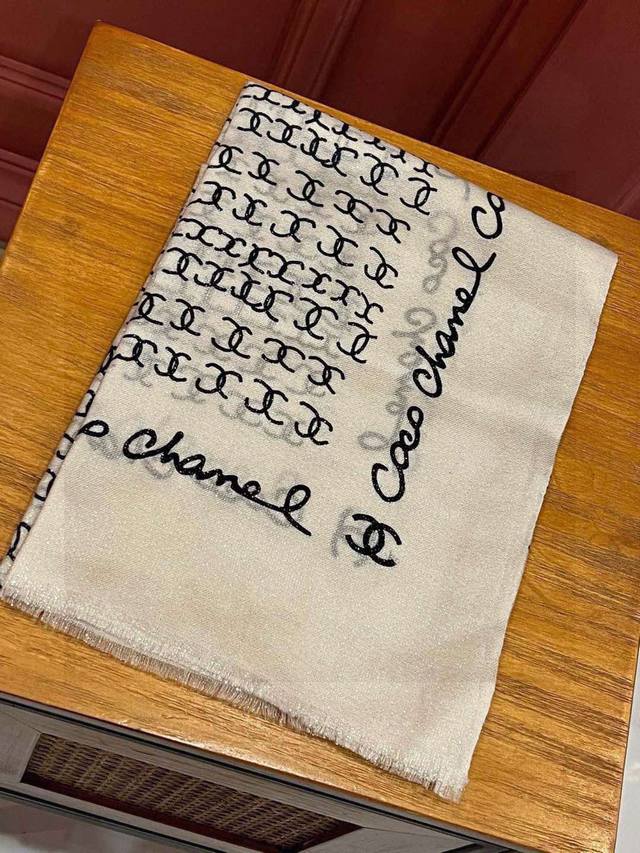 Chanel
Coco Chanel Co